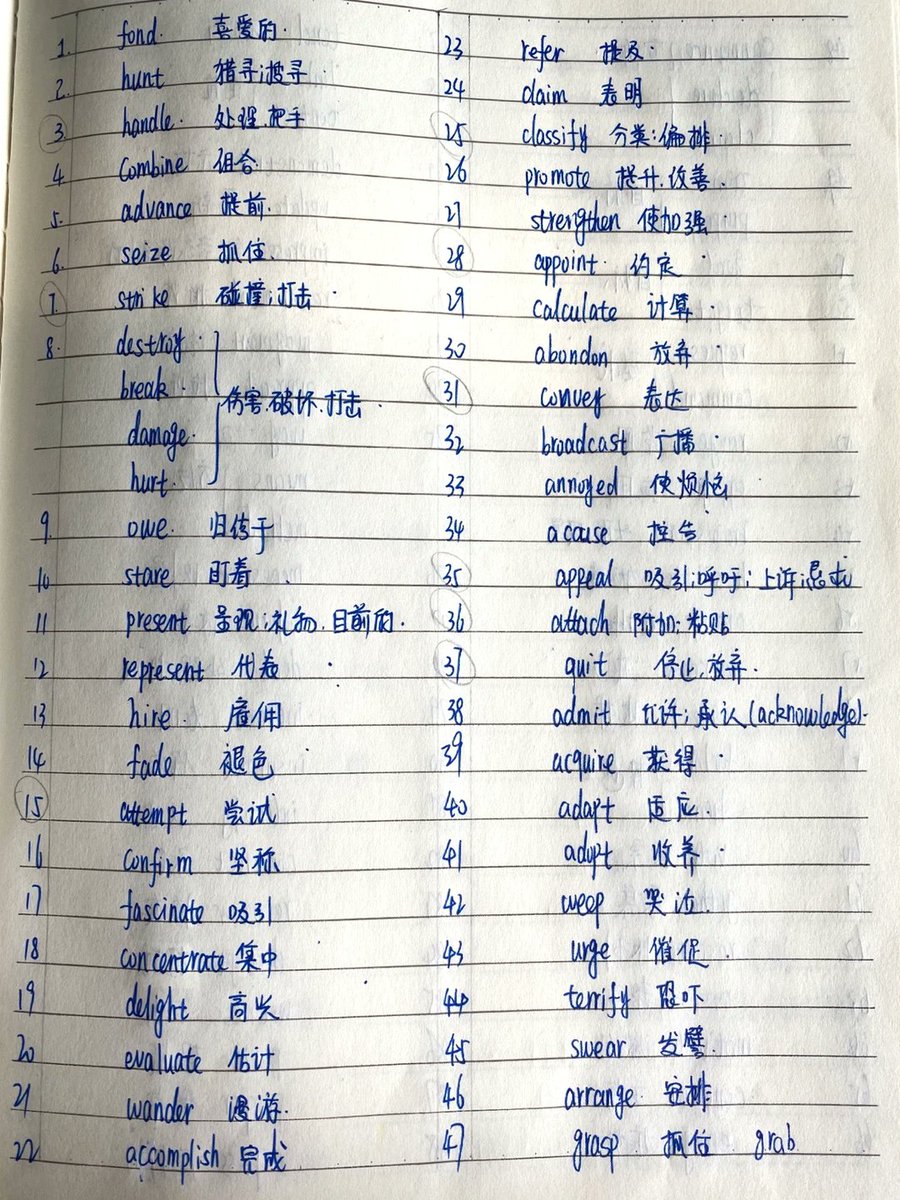 1. fond. 喜爱的.
2. hunt 猎寻;搜寻
3 handle. 处理.把手
4. combine 组合
5. advance 提前.
6. seize 抓住.
7. strike 碰撞;打击
8. destroy.
break.
damage.
hurt.
伤害.破坏.打击.
9. owe. 归结于
10 stare 盯着
11 present 呈现;礼物.目前的.
12 represent 代表
13 hire. 雇佣
14 fade 褪色
15 attempt 尝试
16 confirm 坚称
17 fascinate 吸引
18 concentrate 集中
19 delight 高兴
20 evaluate 估计
21 wander 漫游.
22 accomplish 完成
23 refer 提及.
24 claim 表明
25 classify 分类;编排.
26 promote 提升.改善.
27 strengthen 使加强
28 appoint. 约定.
29 calculate 计算.
30 abandon 放弃
31 convey 表达
32 broadcast 广播.
33 annoyed 使烦恼
34 accuse 控告
35 appeal 吸引;呼吁;上诉;
36 attach 附加;粘贴
37 quit 停止.放弃.
38 admit 允许;承认(acknowledge).
39 acquire 获得.
40 adapt 适应.
41 adopt 收养.
42 weep 哭泣.
43 urge 催促.
44 terrify 恐吓
45 swear 发誓.
46 arrange 安排
47 grasp 抓住 grab